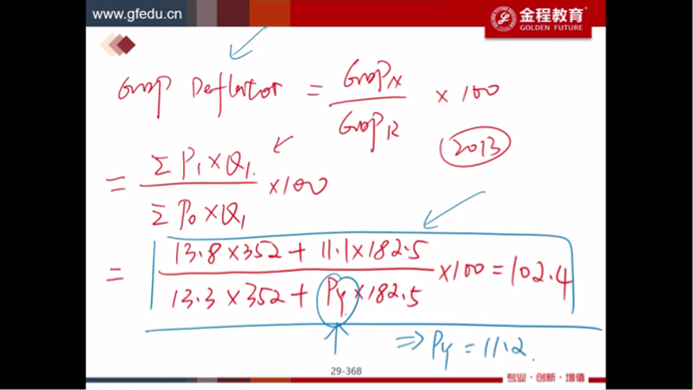 www.gfedu.cn
金程教育
GOLDEN FUTURE
GDP Deflator = GDP_N / GDP_R × 100
2013
= Σ P₁ × Q₁ / Σ P₀ × Q₁ × 100
= 13.8 × 352 + 11.1 × 182.5 / 13.3 × 352 + Py × 182.5 × 100 = 102.4
⇒ Py = 11.2.
29-368
专业·创新·增值